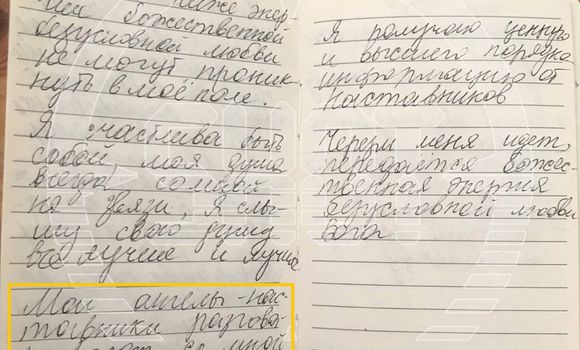 ниже энер-
гии божественной
безусловной любви
не могут проник-
нуть в моё поле.
Я счастлива быть
собой, моя душа
всегда со мной
на связи, я слы-
шу свою душу
всё лучше и лучше
Мои ангелы-нас-
тавники разгова-
со мной
Я получаю ценную
и высшего порядка
информацию от
наставников
Через меня идет,
передается божес-
твенная энергия
безусловной любви
Бога